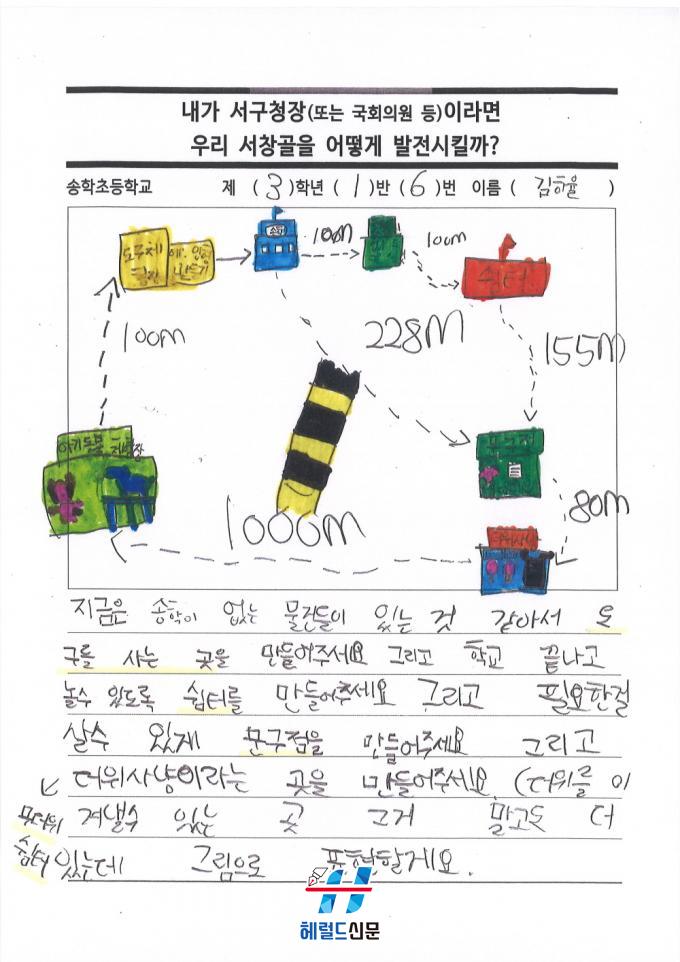 내가 서구청장(또는 국회의원 등)이라면
우리 서창골을 어떻게 발전시킬까?
송학초등학교 제 ( 3 )학년 ( 1 )반 ( 6 )번 이름 ( 김하율 )
100m
100m
쉼터
100m
228M
155M
80M
1000m
지금은 송학이 없는 물건들이 있는 것 같아서 도
구를 사는 곳을 만들어주세요 그리고 학교 끝나고
놀수 있도록 쉼터를 만들어주세요 그리고 필요한걸
살수 있게 문구점을 만들어주세요 그리고
더위사냥이라는 곳을 만들어주세요. (더위를 이
겨낼수 있는 곳 그거 말고도 더
있는데 그림으로 표현할게요.
무더위
쉼터
헤럴드신문